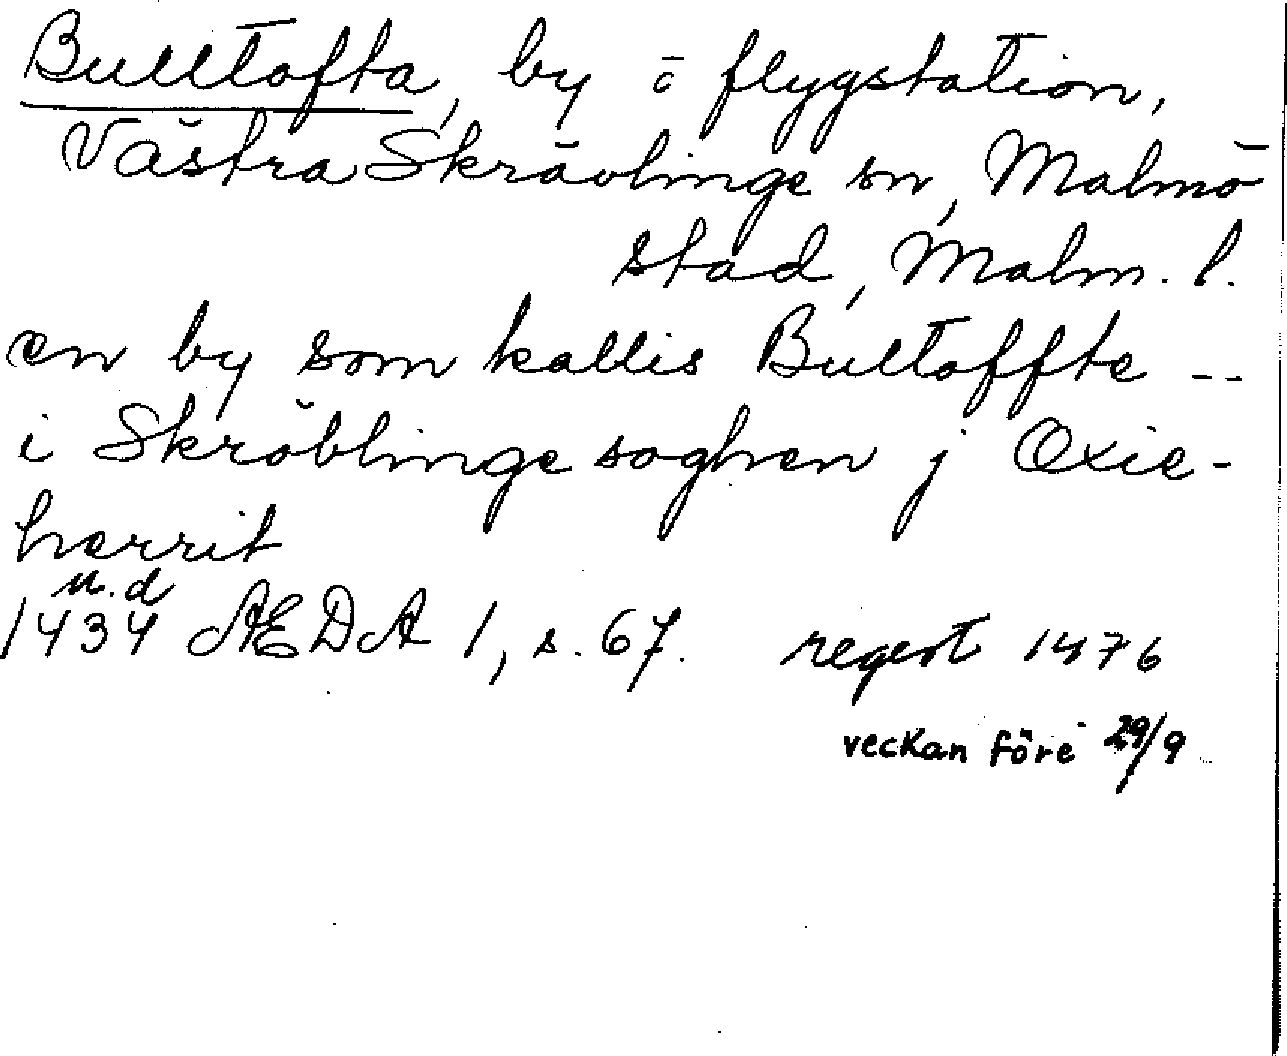 Bulltofta, by o flygstation,
Västra Skrävlinge sn, Malmö
stad, Malm. l.
en by som kallis Bultoffte --
i Skröblinge soghen j Oxie-
herrit
u.d
1434 AEDA 1, s. 67. regest 1476
veckan före 29/9